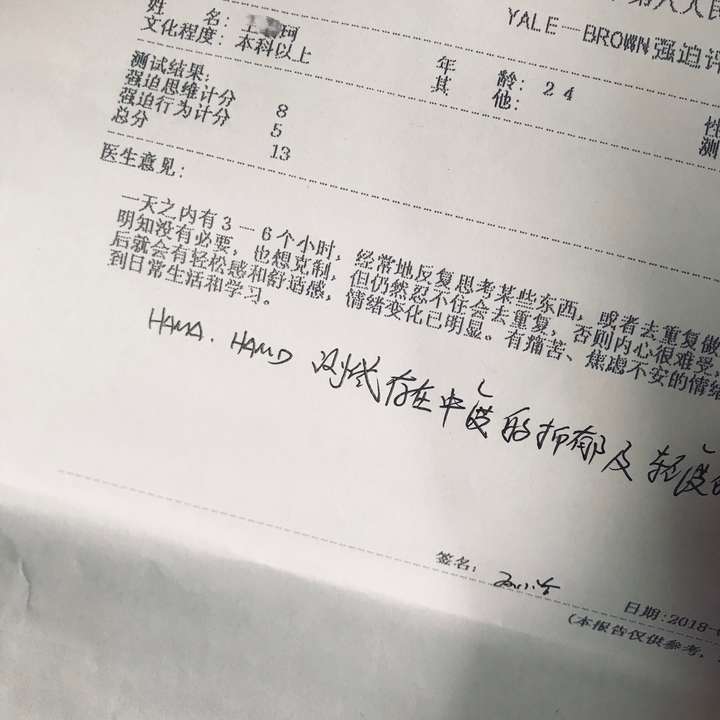 第八人民
YALE—BROWN强迫评
姓 名: 王 珂
年 龄: 24
性
文化程度: 本科以上
其 他:
测
测试结果:
强迫思维计分 8
强迫行为计分 5
总分 13
医生意见:
一天之内有3—6个小时, 经常地反复思考某些东西, 或者去重复做
明知没有必要, 也想克制, 但仍然忍不住会去重复, 否则内心很难受,
后就会有轻松感和舒适感, 情绪变化已明显。有痛苦、焦虑不安的情绪
到日常生活和学习。
HAMA. HAMD 测试存在中度的抑郁及轻度
签名:
日期:2018-
(本报告仅供参考,